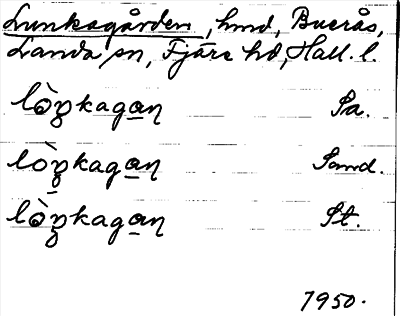 Lunkagården, hmd, Buerås,
Landa sn, Fjäre hd, Hall. l.
lòŋkagan̥ Sa.
lòŋkagan̥ Sand.
lòŋkagan̥ St.
1950.